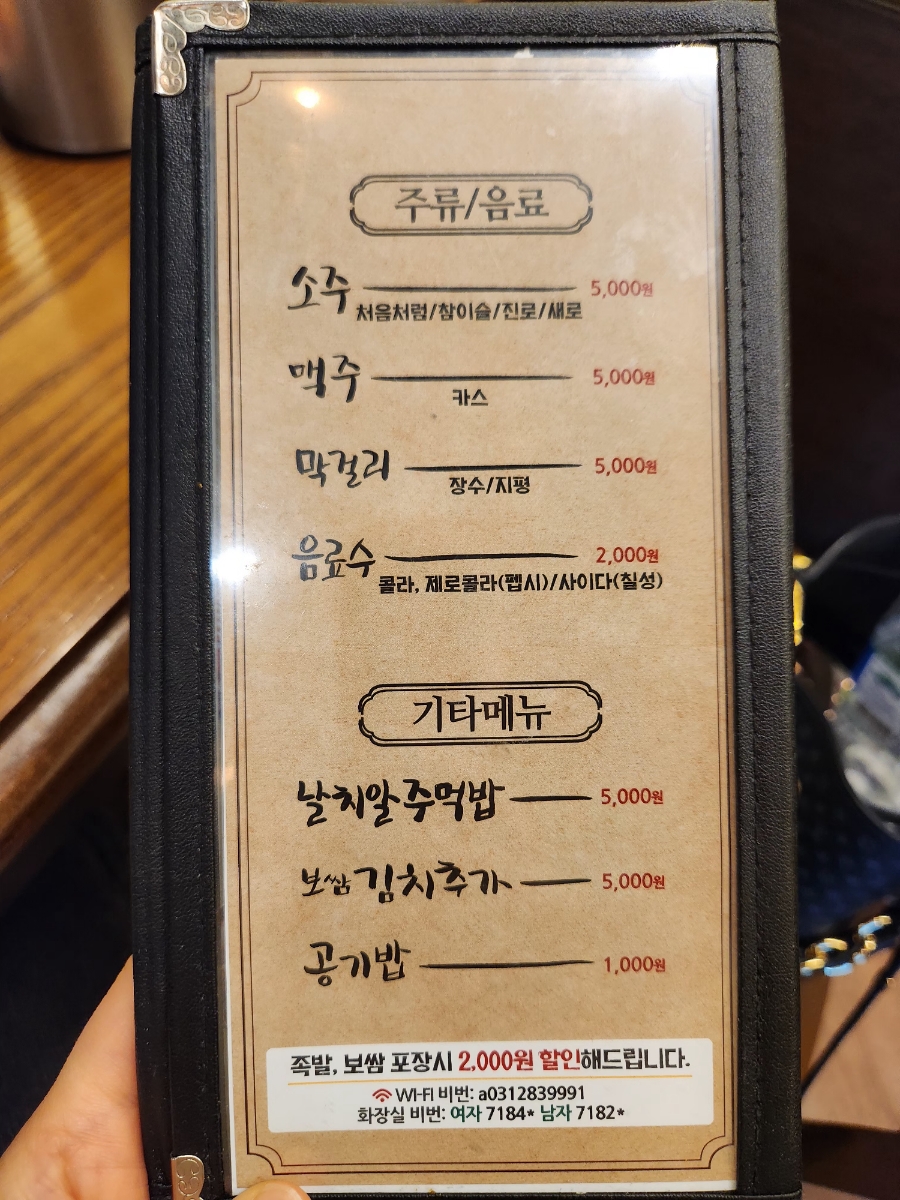 주류/음료
소주 5,000원
처음처럼/참이슬/진로/새로
맥주 5,000원
카스
막걸리 5,000원
장수/지평
음료수 2,000원
콜라, 제로콜라(펩시)/사이다(칠성)
기타메뉴
날치알주먹밥 5,000원
보쌈김치추가 5,000원
공기밥 1,000원
족발, 보쌈 포장시 2,000원 할인해드립니다.
WI-FI 비번: a0312839991
화장실 비번: 여자 7184* 남자 7182*